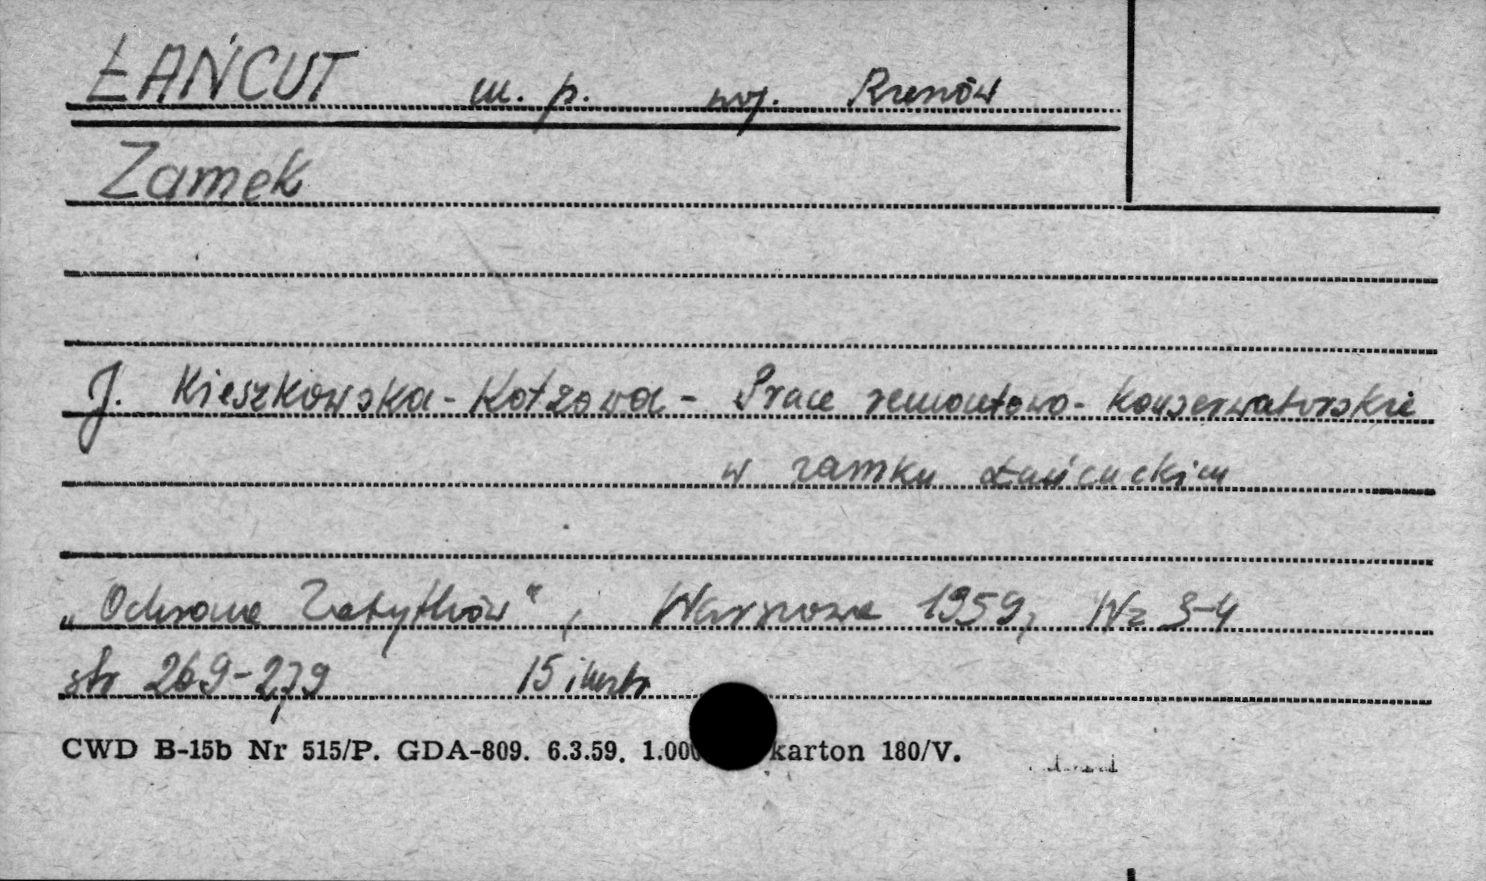 ŁAŃCUT m. p. woj. Rzeszów
Zamek
J. Kieszkowska-Kotzowa - Prace remontowo-konserwatorskie
w zamku Łańcuckim
„Ochrona Zabytków", Warszawa 1959, Nr 3-4
str 269-279 15 ilustr
CWD B-15b Nr 515/P. GDA-809. 6.3.59. 1.000 karton 180/V.